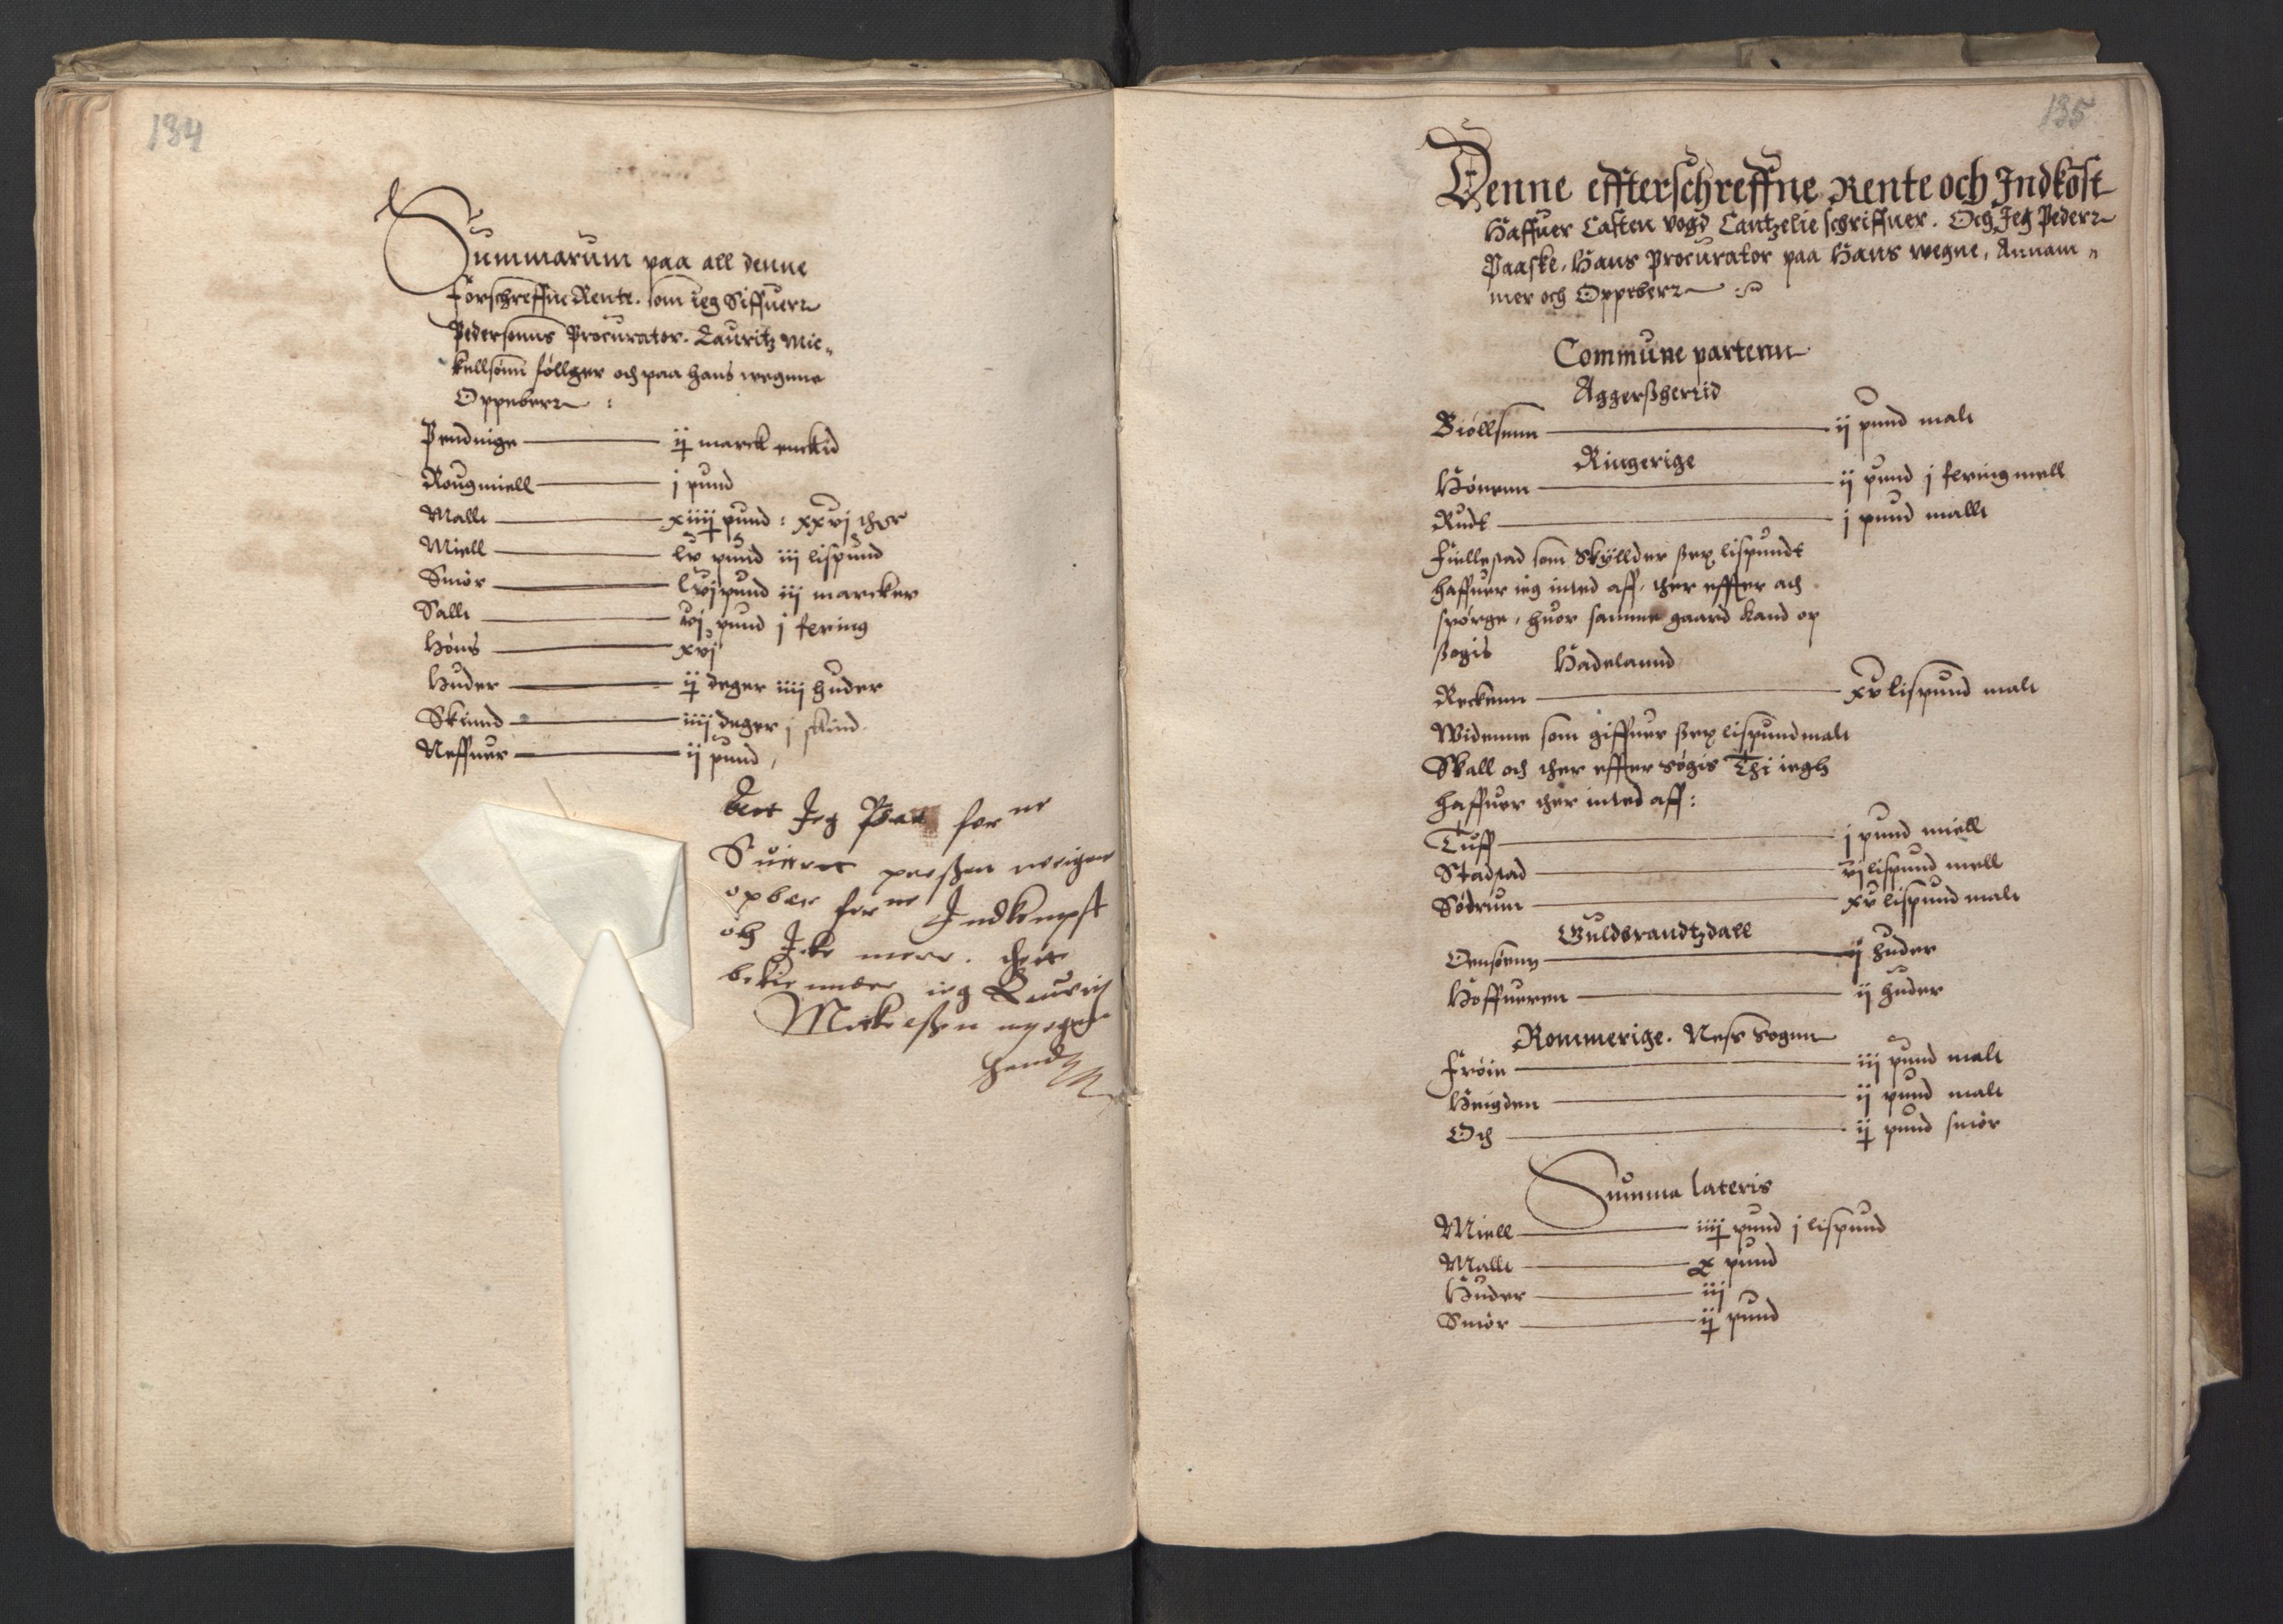 134
Summarum paa all denne
forschreffne Rente. som ieg Siffuerr
Pederssønns Procurator. Lauritz Mic„
kellsønn søllger och paa hans wegnne
Oppeberr :
Pendnige ij marck enckid
Rougmiell j pund
Mallt xiiij pund : xxvj ther
Miell lv pund iij lispund
Smør lvj pund iij marcker
Sallt vj pund j fering
Høns xvj
Huder ij deger iiij huder
Skinnd iiij deger j skind
Neffuer ij pund
At Jeg Paa for ne
Siuert perßen weigne
opber for ne Indkompst
och Jcke mere. thett
bekiender ieg Lauritz
Mickelßen m egen
hand
135
Denne effterschreffne Rente och Indkøst
Haffuer Casten vogd Cantzelie schriffuer. Och Jeg Pederr
Paaske. Hans Procurator paa Hans wegne, Annam„
mer och Oppeberr
Commune partenn
Aggerßherrid
Biøllsenn ij pund malt
Ringerige
Hønenn ij pund j fering mell
Rudt j pund mallt
Fiellestad som Skyllder sex lispundt
haffuer ieg inted aff, ther effter ath
spørge, huor samme gaard kand op
søgis
Hadelannd
Reckenn xv lispund malt
Widenne som giffuer sex lispund malt
Skall och ther effter søgis Thi iegh
haffuer ther inted aff :
Tuff j pund miell
Stadstad vj lispund mell
Sødrum xv lispund malt
Guldbrandtzdall
Oensøenn ij huder
Hoffueren ij huder
Rommerige. Ness Sogenn
Frøin iij pund malt
Heigden ij pund malt
Och ij pund smør
Summa lateris
Miell iiij pund j lispund
Mallt x pund
Huder iij
Smør ij pund